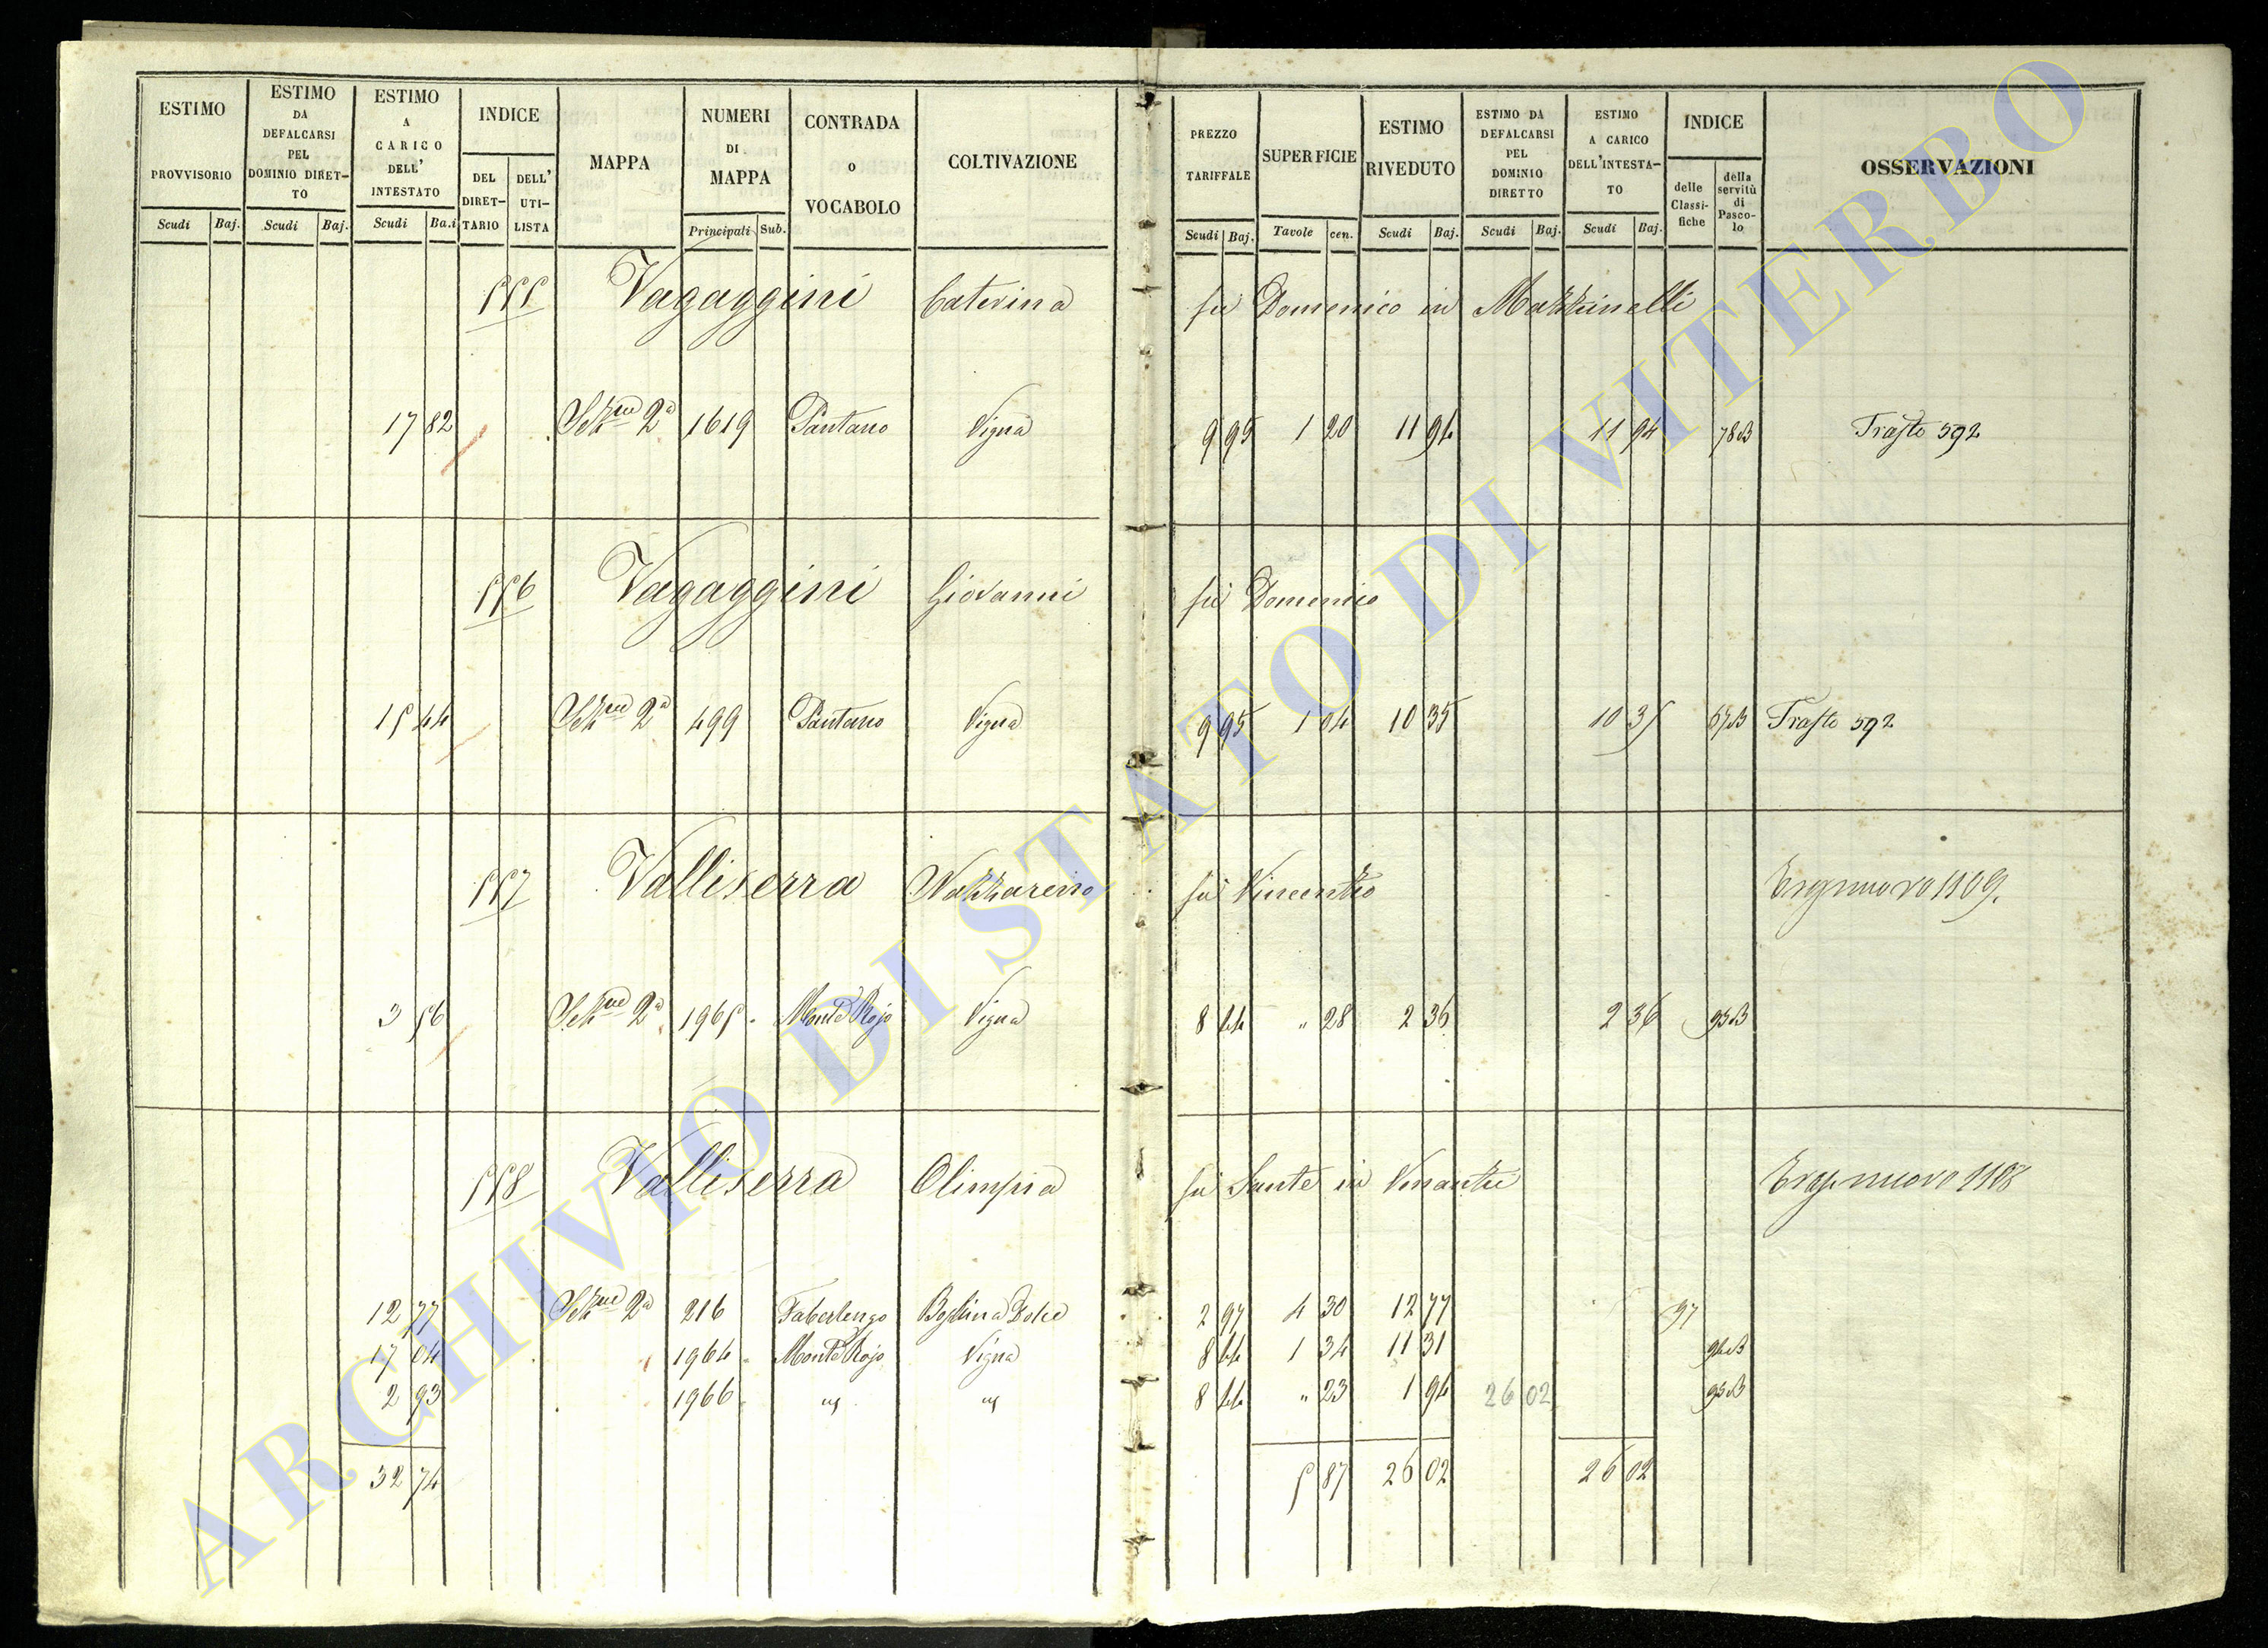 ESTIMO PROVVISORIO
Scudi Baj.
ESTIMO DA DEFALCARSI PEL DOMINIO DIRET-TO
Scudi Baj.
ESTIMO A CARICO DELL' INTESTATO
Scudi Ba.i
INDICE
DEL DIRET-TARIO
DELL' UTI-LISTA
MAPPA
NUMERI DI MAPPA
Principali Sub.
CONTRADA o VOCABOLO
COLTIVAZIONE
PREZZO TARIFFALE
Scudi Baj.
SUPERFICIE
Tavole cen.
ESTIMO RIVEDUTO
Scudi Baj.
ESTIMO DA DEFALCARSI PEL DOMINIO DIRETTO
Scudi Baj.
ESTIMO A CARICO DELL'INTESTA-TO
Scudi Baj.
INDICE
delle Classi-fiche
della servitù di Pasco-lo
OSSERVAZIONI
555 Vagaggini Caterina fu Domenico in Mazzinelli
17 82 Sezne 2a 1619 Pantano Vigna 9 95 1 20 11 94 11 94 78B Trasto 592
556 Vagaggini Giovanni fu Domenico
15 44 Sezne 2a 499 Pantano Vigna 9 95 1 04 10 35 10 35 Trasto 592
557 Valliserra Nazzareno fu Vincenzo 1109.
3 56 Sezne 2a 1965 Monte Rojo Vigna 8 44 " 28 2 36 2 36 95B
558 Valliserra Olimpia fu Sante in Venantii
12 77 Sezne 2a 216 Faberlengo Dolce 2 97 4 30 12 77 97
17 04 1964 Monte Rojo Vigna 8 44 1 34 11 31 96B
2 93 1966 " " 8 44 " 23 1 94 26 02 95B
32 74 5 87 26 02 26 02
ARCHIVIO DI STATO DI VITERBO